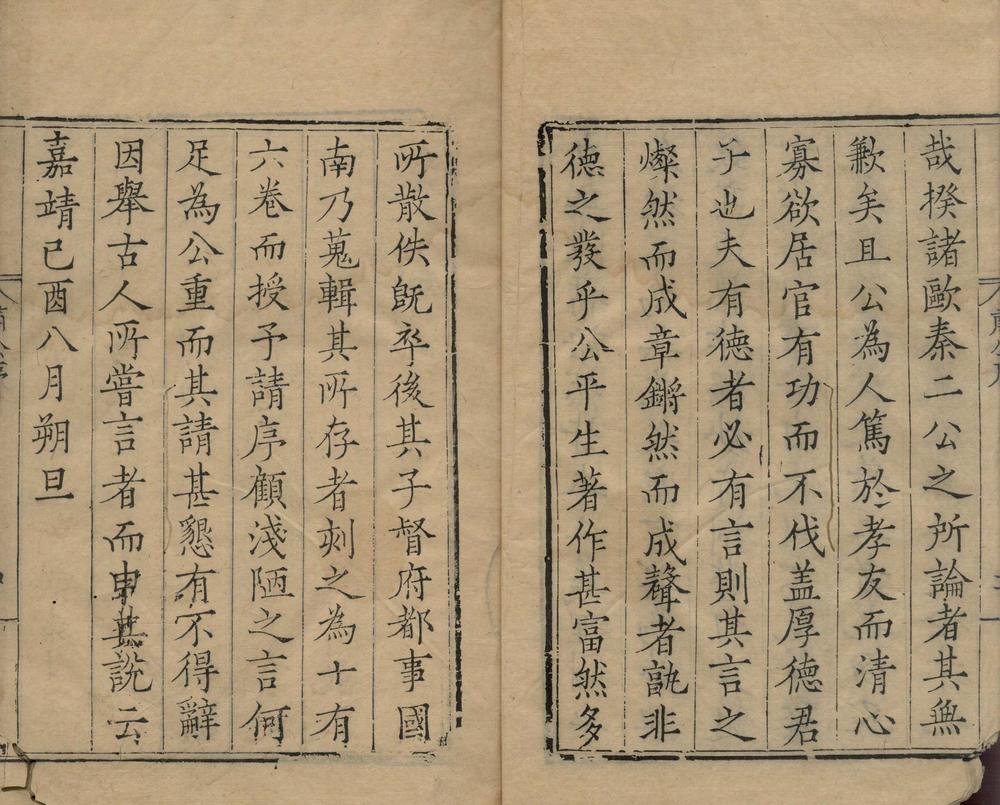 哉揆諸歐秦二公之所論者其無
歉矣且公為人篤於孝友而清心
寡欲居官有功而不伐盖厚德君
子也夫有德者必有言則其言之
燦然而成章鏘然而成聲者孰非
德之發乎公平生著作甚富然多
所散佚旣卒後其子督府都事國
南乃蒐輯其所存者刻之為十有
六卷而授予請序顧淺陋之言何
足為公重而其請甚懇有不得辭
因舉古人所嘗言者而申其說云
嘉靖己酉八月朔旦